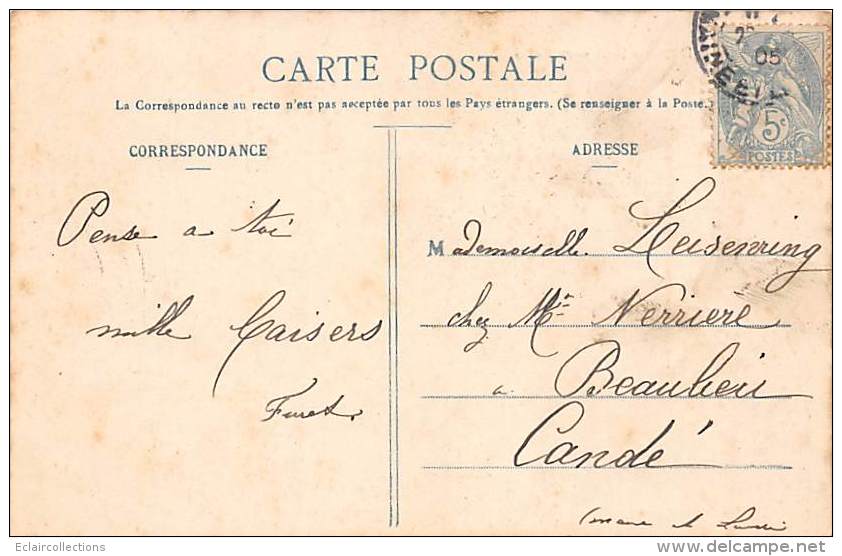 CARTE POSTALE
La Correspondance au recto n'est pas acceptée par tous les Pays étrangers. (Se renseigner à la Poste.)
CORRESPONDANCE
ADRESSE
05
5c
POSTES
Pense a toi
mille Baisers
Mademoiselle Leisenring
chez Mr Verriere
a Beaulieu
Candé
Eclaircollections
www.delcampe.net